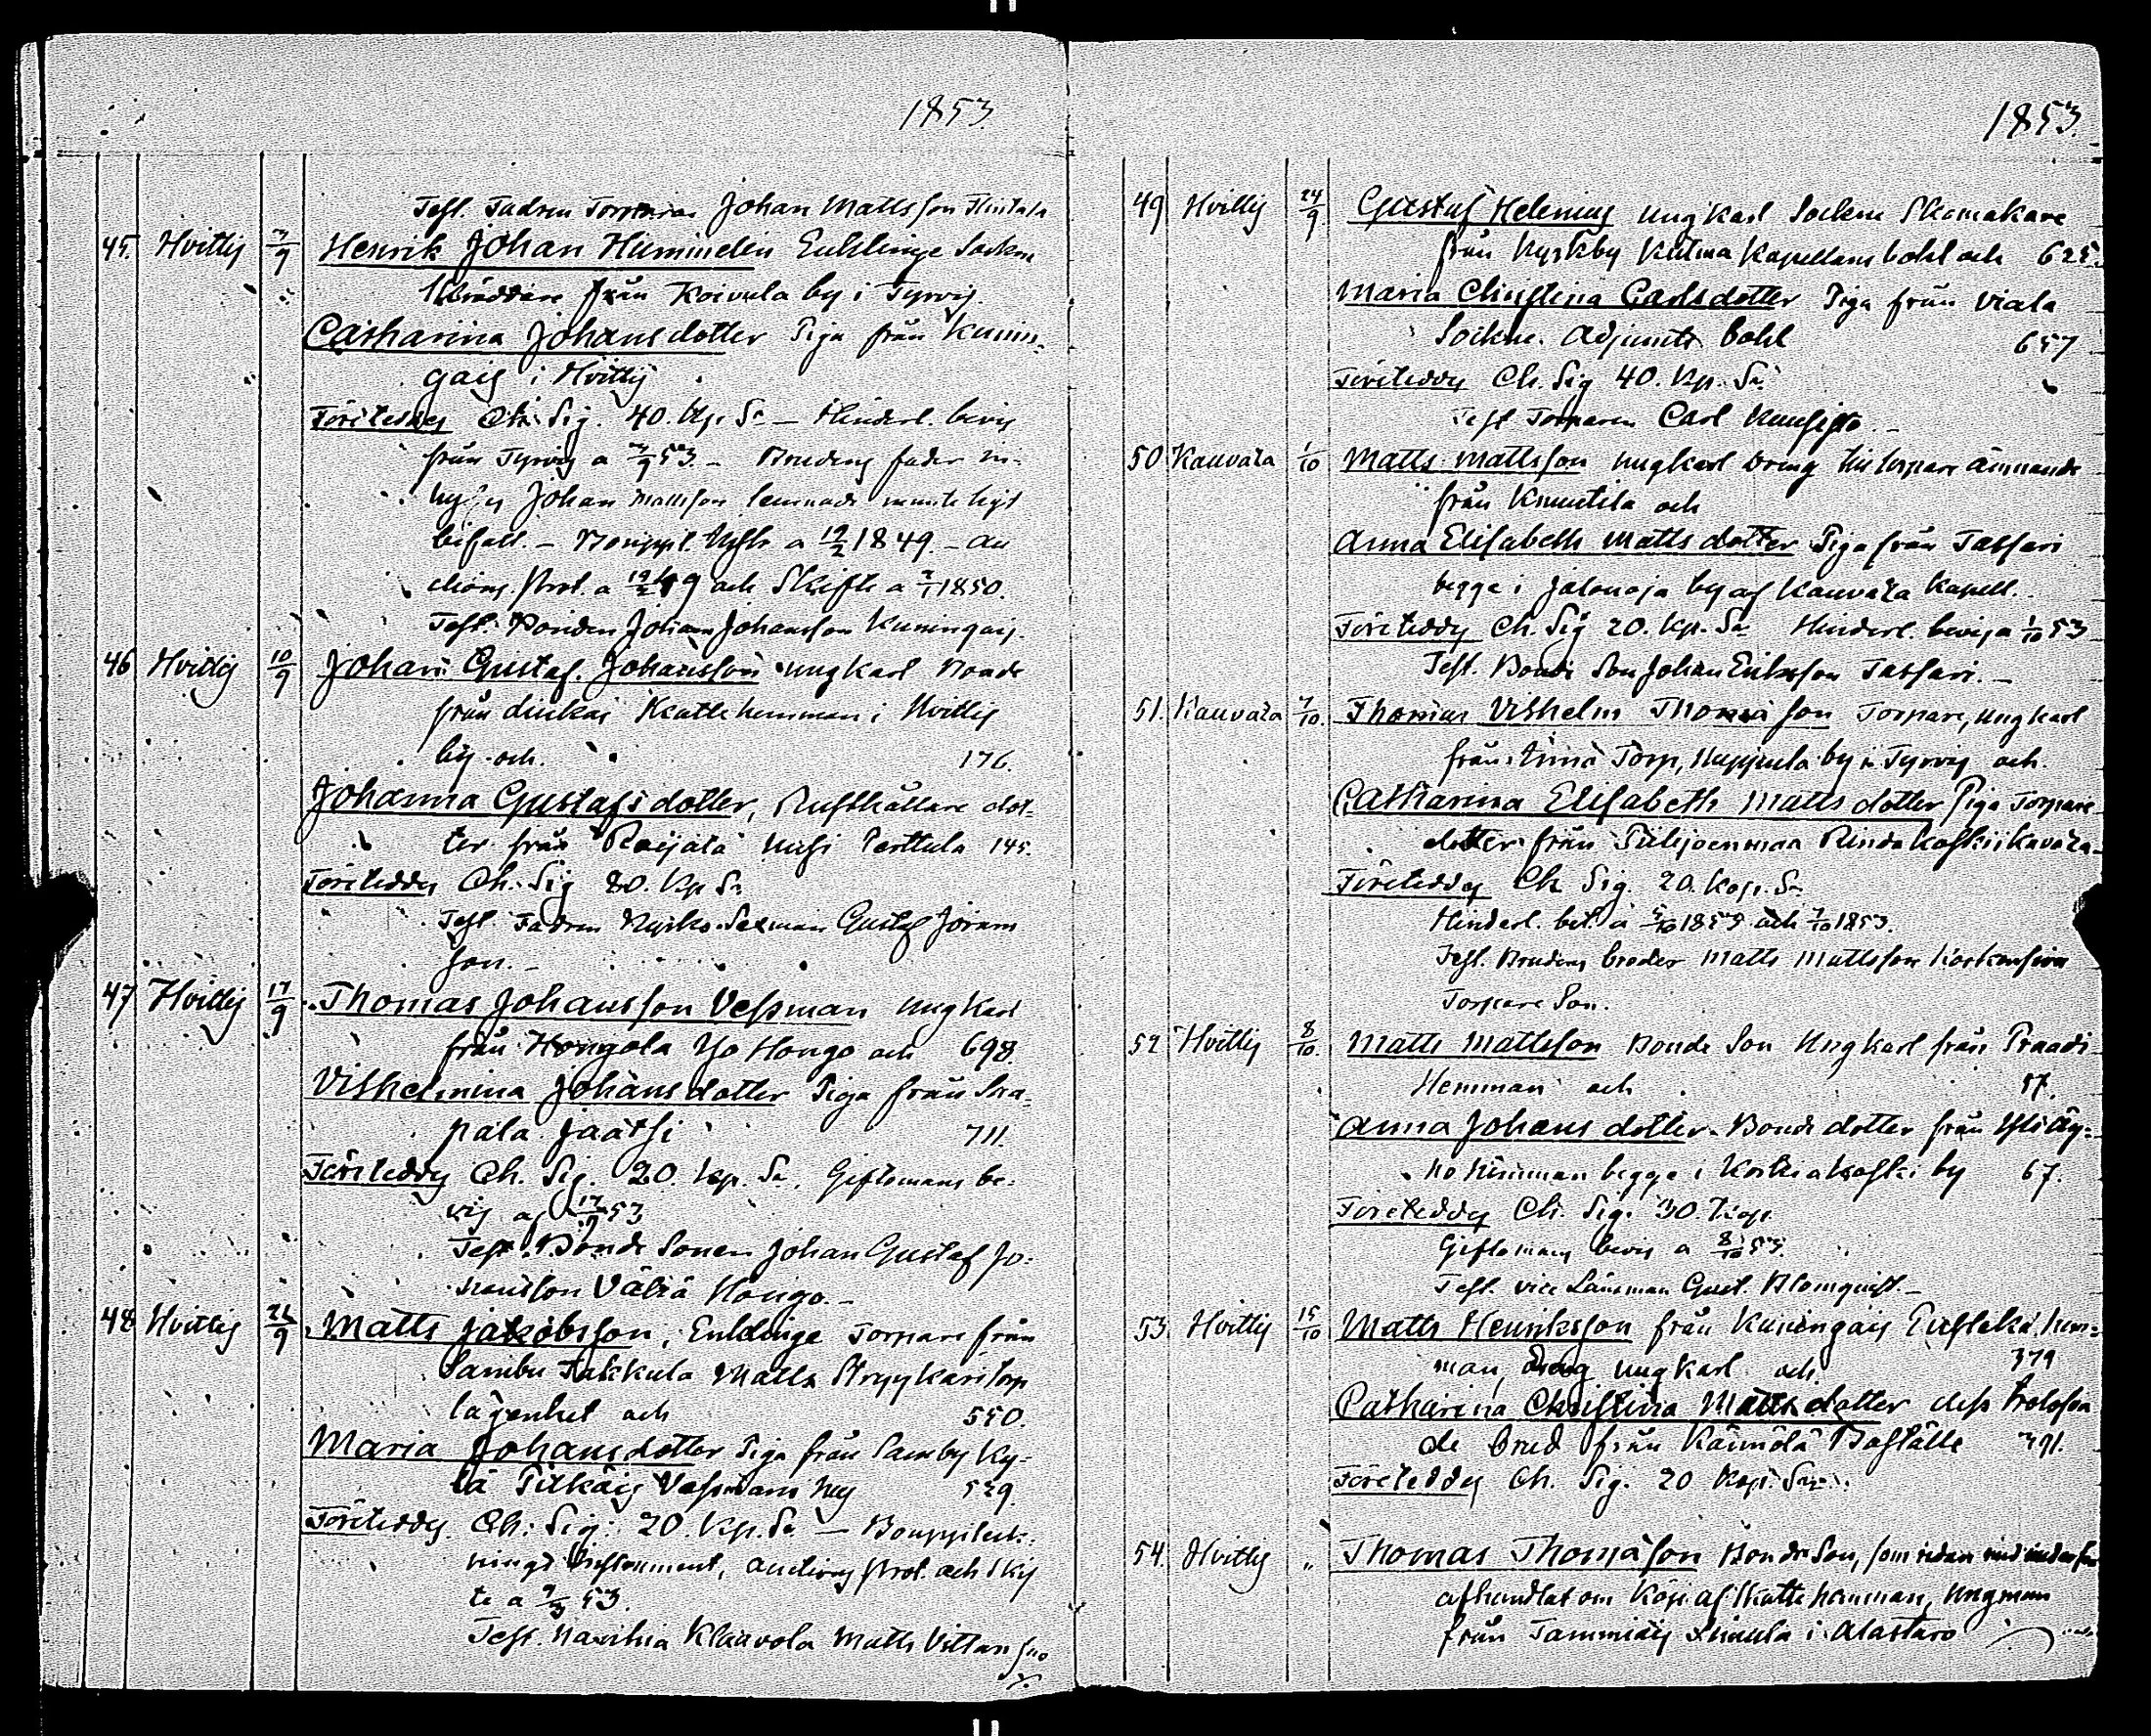 1853
Test. Fadren Torparen Johan Mattsson Hintala
45. Hvittis 3/9 Henrik Johan Huminelin Enklinge Socken
Skräddare från Koivula by i Tyrvis.
Catharina Johansdotter Piga från Kunin-
gais i Hvittis
Företeddes Ch. Sig. 40. Kp. Sr – Hinderl. bevis
från Tyrvis a 3/9 53. – Brudens fader in-
hyses Johan Mattsson lemnade munteligt
bifall. – Bouppt. Instr. a 19/2 1849. – au
ctions Prot. a 19/2 49 och Skifte a 7/1 1850.
Test. Bonden Johan Johansson Kuningais.
46 Hvittis 10/9 Johan Gustaf Johansson ungkarl Bonde
från Skatte hemman i Hvittis
by och. 176.
Johanna Gustafsdotter, Rusthållare dot-
ter från Raijala Uusi Perttula 145.
Företeddes Ch. Sig 80. Kp Sr
Test. Fadren Kyrko-Sexman Gustaf Joram
son. –
47 Hvittis 17/9 Thomas Johansson Vessman ungkarl
från Hongola Yo Hongo och 698.
Vilhelmina Johansdotter Piga från Sua-
pala Jaatsi 711.
Företeddes Ch. Sig. 20. Kp. Sr. Giftomans be-
vis af 17/9 53
Test. Bonde Sonen Johan Gustaf Jo-
hansson Väliä Hongo. –
48 Hvittis 26/9 Matts Jakobsson, Enklinge Torpare från
Sambu Takkula Matts torp
lägenhet och 550.
Maria Johansdotter Piga från Samby Ky-
lä Pitkäis Vessmans hus 529.
Företeddes Ch. Sig. 20. Kp. Sr – Bouppteck-
nings Instrument, auctions Prot. och skif
te a 7/3 53.
Test. Klaavola Matts
1853.
49 Hvittis 24/9 Gustaf Helenius ungkarl Socken Skomakare
från Kyrkby Kapellans bohl och 625.
Maria Christina Carlsdotter Piga från Viala
Sockne. Adjunkts bohl 657
Företeddes Ch. Sig 40. Kp. Sr
Test Torparen Carl Kuusisto. –
50 Kauvatsa 1/10 Matts Mattsson ungkarl Dräng torpare ämnande
från Knuutila och
Anna Elisabeth Mattsdotter Piga från Tassari
begge i Jalonoja by af Kauvatsa Kapell.
Företeddes Ch. Sig 20. Kp. Sr Hinderl. bevis a 1/10 53
Test. Bonde Son Johan Eriksson Tassari. –
51. Kauvatsa 7/10. Thomas Vilhelm Thomasson Torpare, ungkarl
från Torp, by i Tyrvis och.
Catharina Elisabeth Mattsdotter Piga Torpare
dotter från Piilijoenmaa i Kauvatsa.
Företeddes Ch Sig. 20. Kop. Sr
Hinderl. bet. a 5/10 1853 och 7/10 1853.
Test. Brudens broder Matts Mattsson
Torpare Son.
52 Hvittis 8/10. Matts Mattsson Bonde Son Ungkarl från Praadi
Hemman och 57.
Anna Johansdotter Bonde dotter från Yli Äy-
hö Hemman begge i Korkiakoski by 67.
Företeddes Ch. Sig. 30. Kop.
Giftomans bevis a 8/10 53.
Test. vice Länsman Gust. Blomquist. –
53. Hvittis 15/10 Matts Henriksson från Kuningais hem-
man, Dräng ungkarl och. 379
Catharina Christina Mattsdotter dess trolofva
de brud från Kännölä Boställe 391.
Företeddes Ch. Sig. 20 Kop. Sr.
54. Hvittis " Thomas Thomasson Bonde Son, som redan
afhandlat om Köp af Skatte hemman, Ungman
från Tammiais i Alastaro